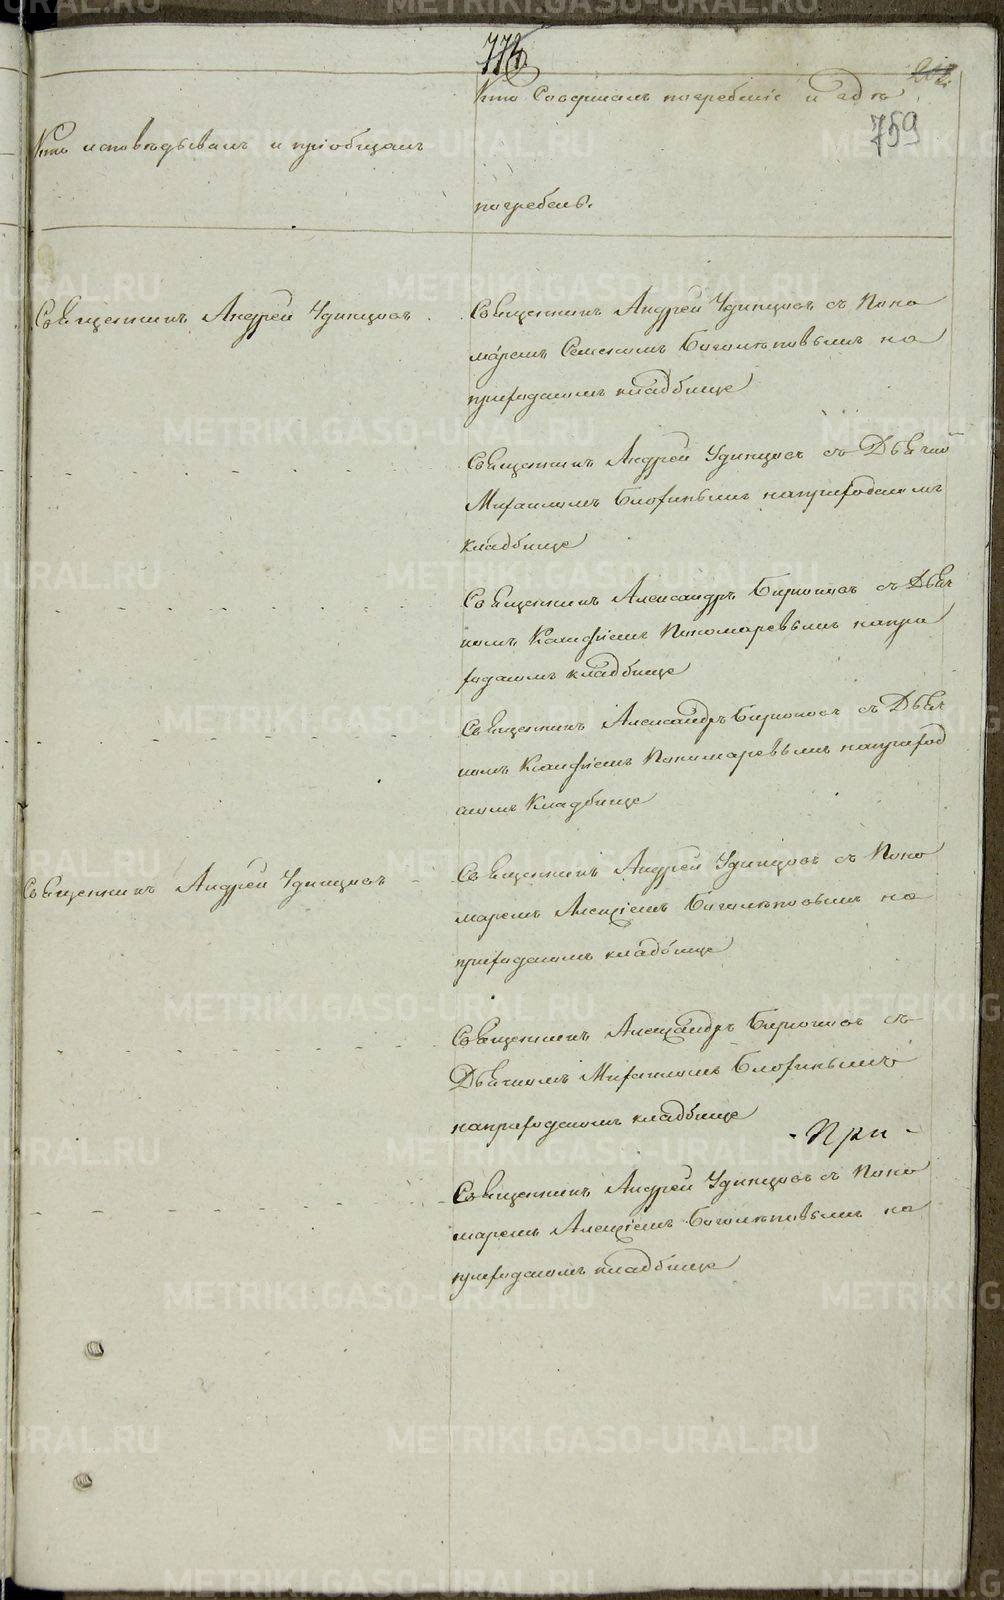 774
202
759
Кто Совершалъ погребенiе и гдѣ
Кто исповѣдывалъ и прiобщалъ
погребенъ.
Священникъ Андрей Удинцовъ
Священникъ Андрей Удинцовъ съ Поно
маремъ Семеномъ Боголѣповымъ на
приходскомъ кладбище
Священникъ Андрей Удинцовъ съ Дьячко
Михаиломъ Блохинымъ наприходскомъ
кладбище
Священникъ Александръ Бирюковъ съ Дьяч
комъ Пономаревымъ напри
ходскомъ кладбище
Священникъ Александръ Бирюковъ съ Дьяч
комъ Пономаревымъ наприход
скомъ Кладбище
Священникъ Андрей Удинцовъ
Священникъ Андрей Удинцовъ съ Поно
маремъ Алексiемъ Боголѣповымъ на
приходскомъ кладбище
Священникъ Александръ Бирюковъ съ
Дьячкомъ Михаиломъ Блохинымъ
наприходскомъ кладбище
- При -
Священникъ Андрей Удинцовъ съ Поно
маремъ Алексiемъ Боголѣповымъ на
приходскомъ кладбище
METRIKI.GASO-URAL.RU